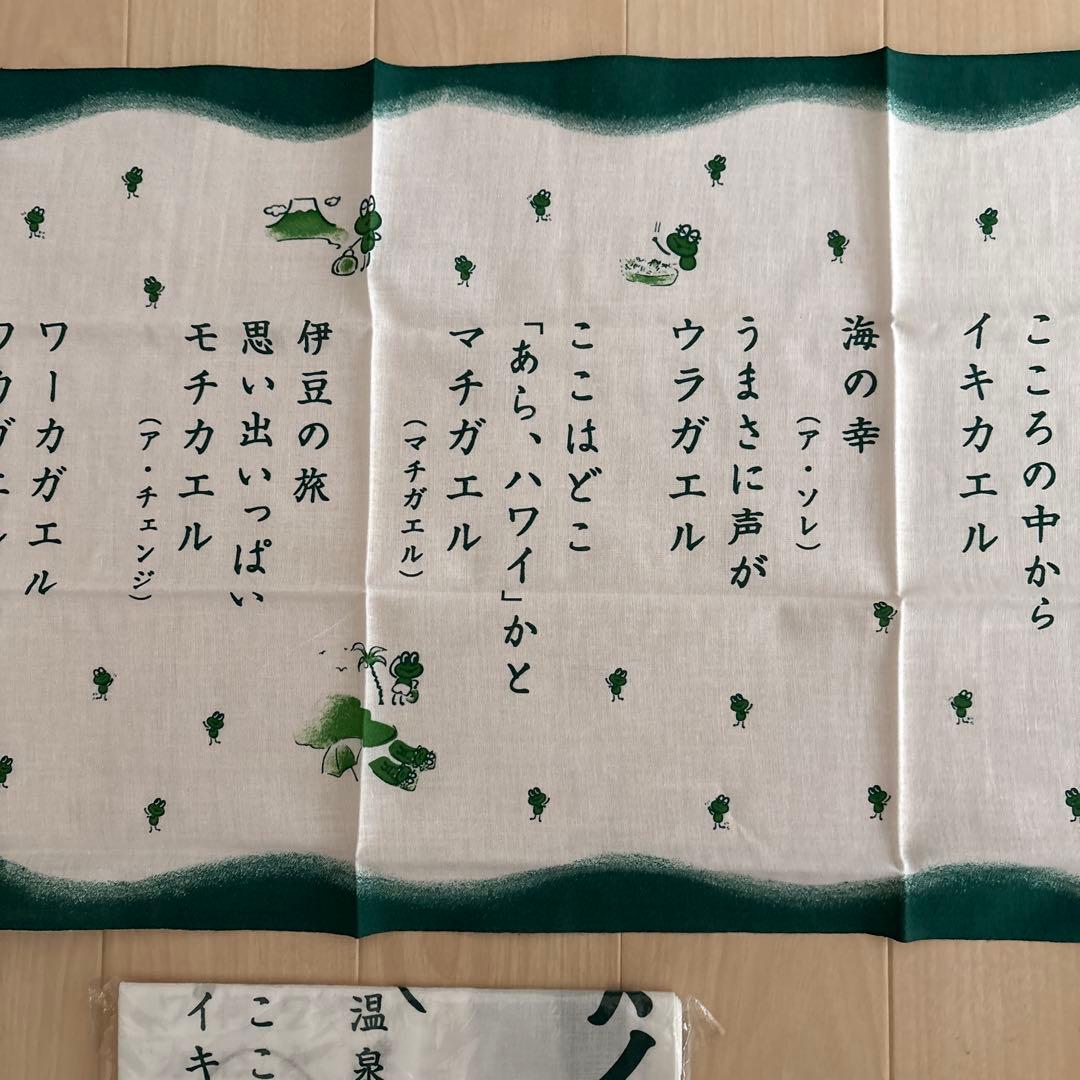 こころの中から
イキカエル
海の幸
（ア・ソレ）
うまさに声が
ウラガエル
ここはどこ
「あら、ハワイ」かと
マチガエル
（マチガエル）
伊豆の旅
思い出いっぱい
モチカエル
（ア・チェンジ）
ワーカガエル
温泉
ここ
イキ